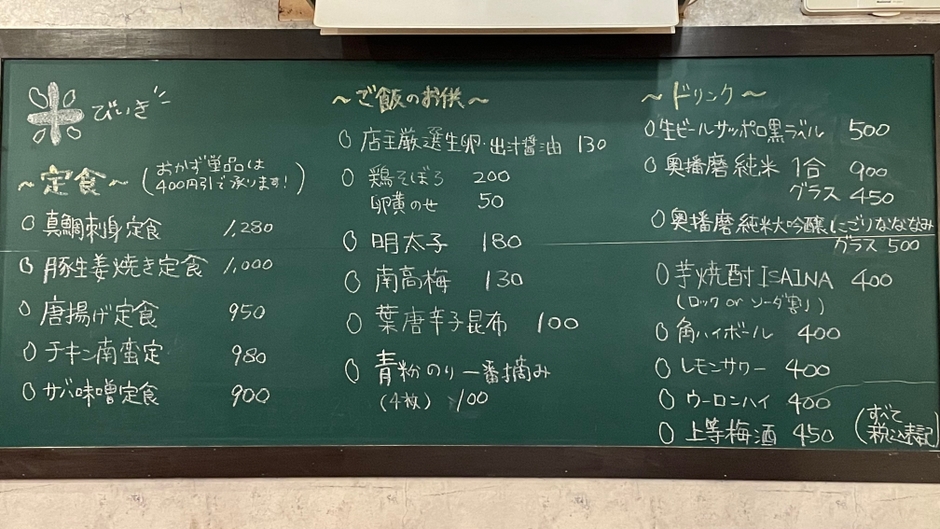 米びいき
〜定食〜
(おかず単品は
400円引で承ります!)
○ 真鯛刺身定食 1,280
○ 豚生姜焼き定食 1,000
○ 唐揚げ定食 950
○ チキン南蛮定 980
○ サバ味噌定食 900
〜ご飯のお供〜
○ 店主厳選生卵・出汁醤油 130
○ 鶏そぼろ 200
卵黄のせ 50
○ 明太子 180
○ 南高梅 130
○ 葉唐辛子昆布 100
○ 青粉のり一番摘み
(4枚) 100
〜ドリンク〜
○ 生ビールサッポロ黒ラベル 500
○ 奥播磨純米 1合 900
グラス 450
○ 奥播磨純米大吟醸にごりななななみ
グラス 500
○ 芋焼酎 ISAINA 400
(ロック or ソーダ割り)
○ 角ハイボール 400
○ レモンサワー 400
○ ウーロンハイ 400
○ 上等梅酒 450
(すべて
税込表記)